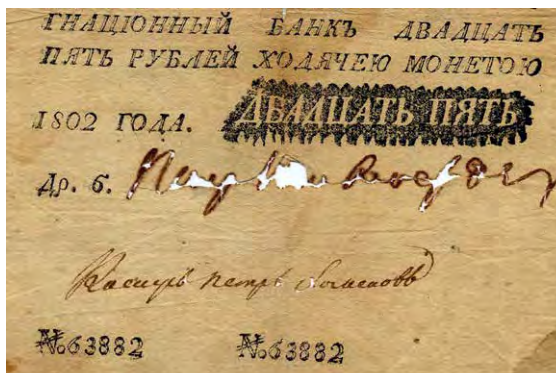 ГНАЦІОННЫЙ БАНКЪ ДВАДЦАТЬ
ПЯТЬ РУБЛЕЙ ХОДЯЧЕЮ МОНЕТОЮ
1802 ГОДА. ДВАДЦАТЬ ПЯТЬ
Др. 6.
Касиръ Петръ
№63882 №63882